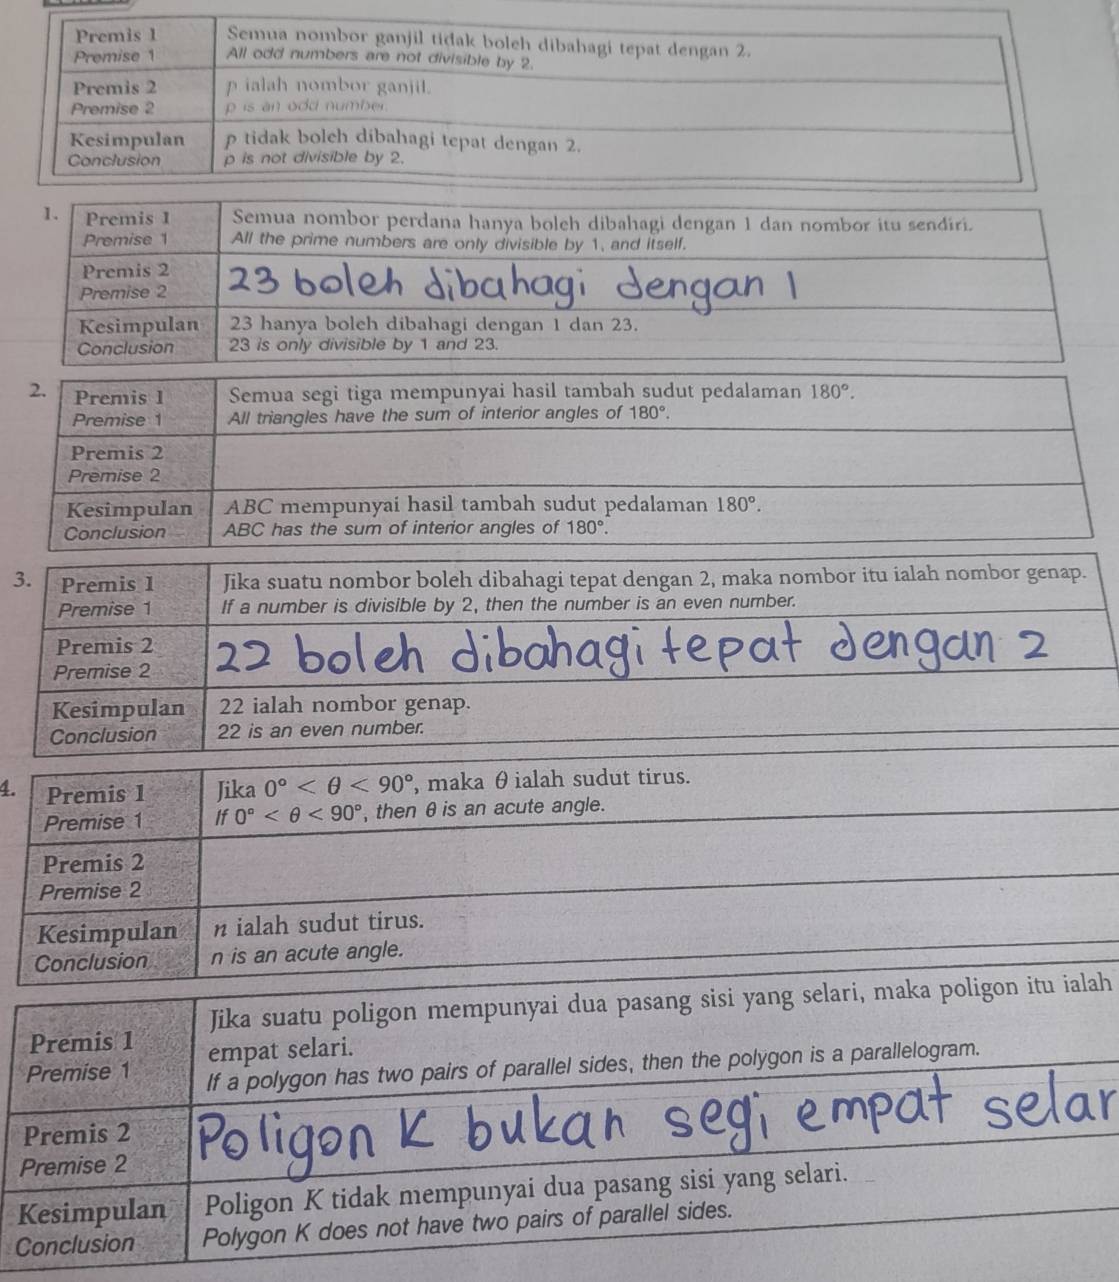 Premis 1 Semua nombor ganjil tidak boleh dibahagi tepat dengan 2.
Premise 1 All odd numbers are not divisible by 2.
Premis 2 p ialah nombor ganjil.
Premise 2 p is an odd number.
Kesimpulan p tidak boleh dibahagi tepat dengan 2.
Conclusion p is not divisible by 2.
1. Premis 1 Semua nombor perdana hanya boleh dibahagi dengan 1 dan nombor itu sendiri.
Premise 1 All the prime numbers are only divisible by 1, and itself.
Premis 2 23 boleh dibahagi dengan 1
Premise 2
Kesimpulan 23 hanya boleh dibahagi dengan 1 dan 23.
Conclusion 23 is only divisible by 1 and 23.
2. Premis 1 Semua segi tiga mempunyai hasil tambah sudut pedalaman 180°.
Premise 1 All triangles have the sum of interior angles of 180°.
Premis 2
Premise 2
Kesimpulan ABC mempunyai hasil tambah sudut pedalaman 180°.
Conclusion ABC has the sum of interior angles of 180°.
3. Premis 1 Jika suatu nombor boleh dibahagi tepat dengan 2, maka nombor itu ialah nombor genap.
Premise 1 If a number is divisible by 2, then the number is an even number.
Premis 2 22 boleh dibahagi tepat dengan 2
Premise 2
Kesimpulan 22 ialah nombor genap.
Conclusion 22 is an even number.
4. Premis 1 Jika 0° < θ < 90°, maka θ ialah sudut tirus.
Premise 1 If 0° < θ < 90°, then θ is an acute angle.
Premis 2
Premise 2
Kesimpulan n ialah sudut tirus.
Conclusion n is an acute angle.
Jika suatu poligon mempunyai dua pasang sisi yang selari, maka poligon itu ialah
Premis 1 empat selari.
Premise 1 If a polygon has two pairs of parallel sides, then the polygon is a parallelogram.
Premis 2 Poligon K bukan segi empat selar
Premise 2
Kesimpulan Poligon K tidak mempunyai dua pasang sisi yang selari.
Conclusion Polygon K does not have two pairs of parallel sides.